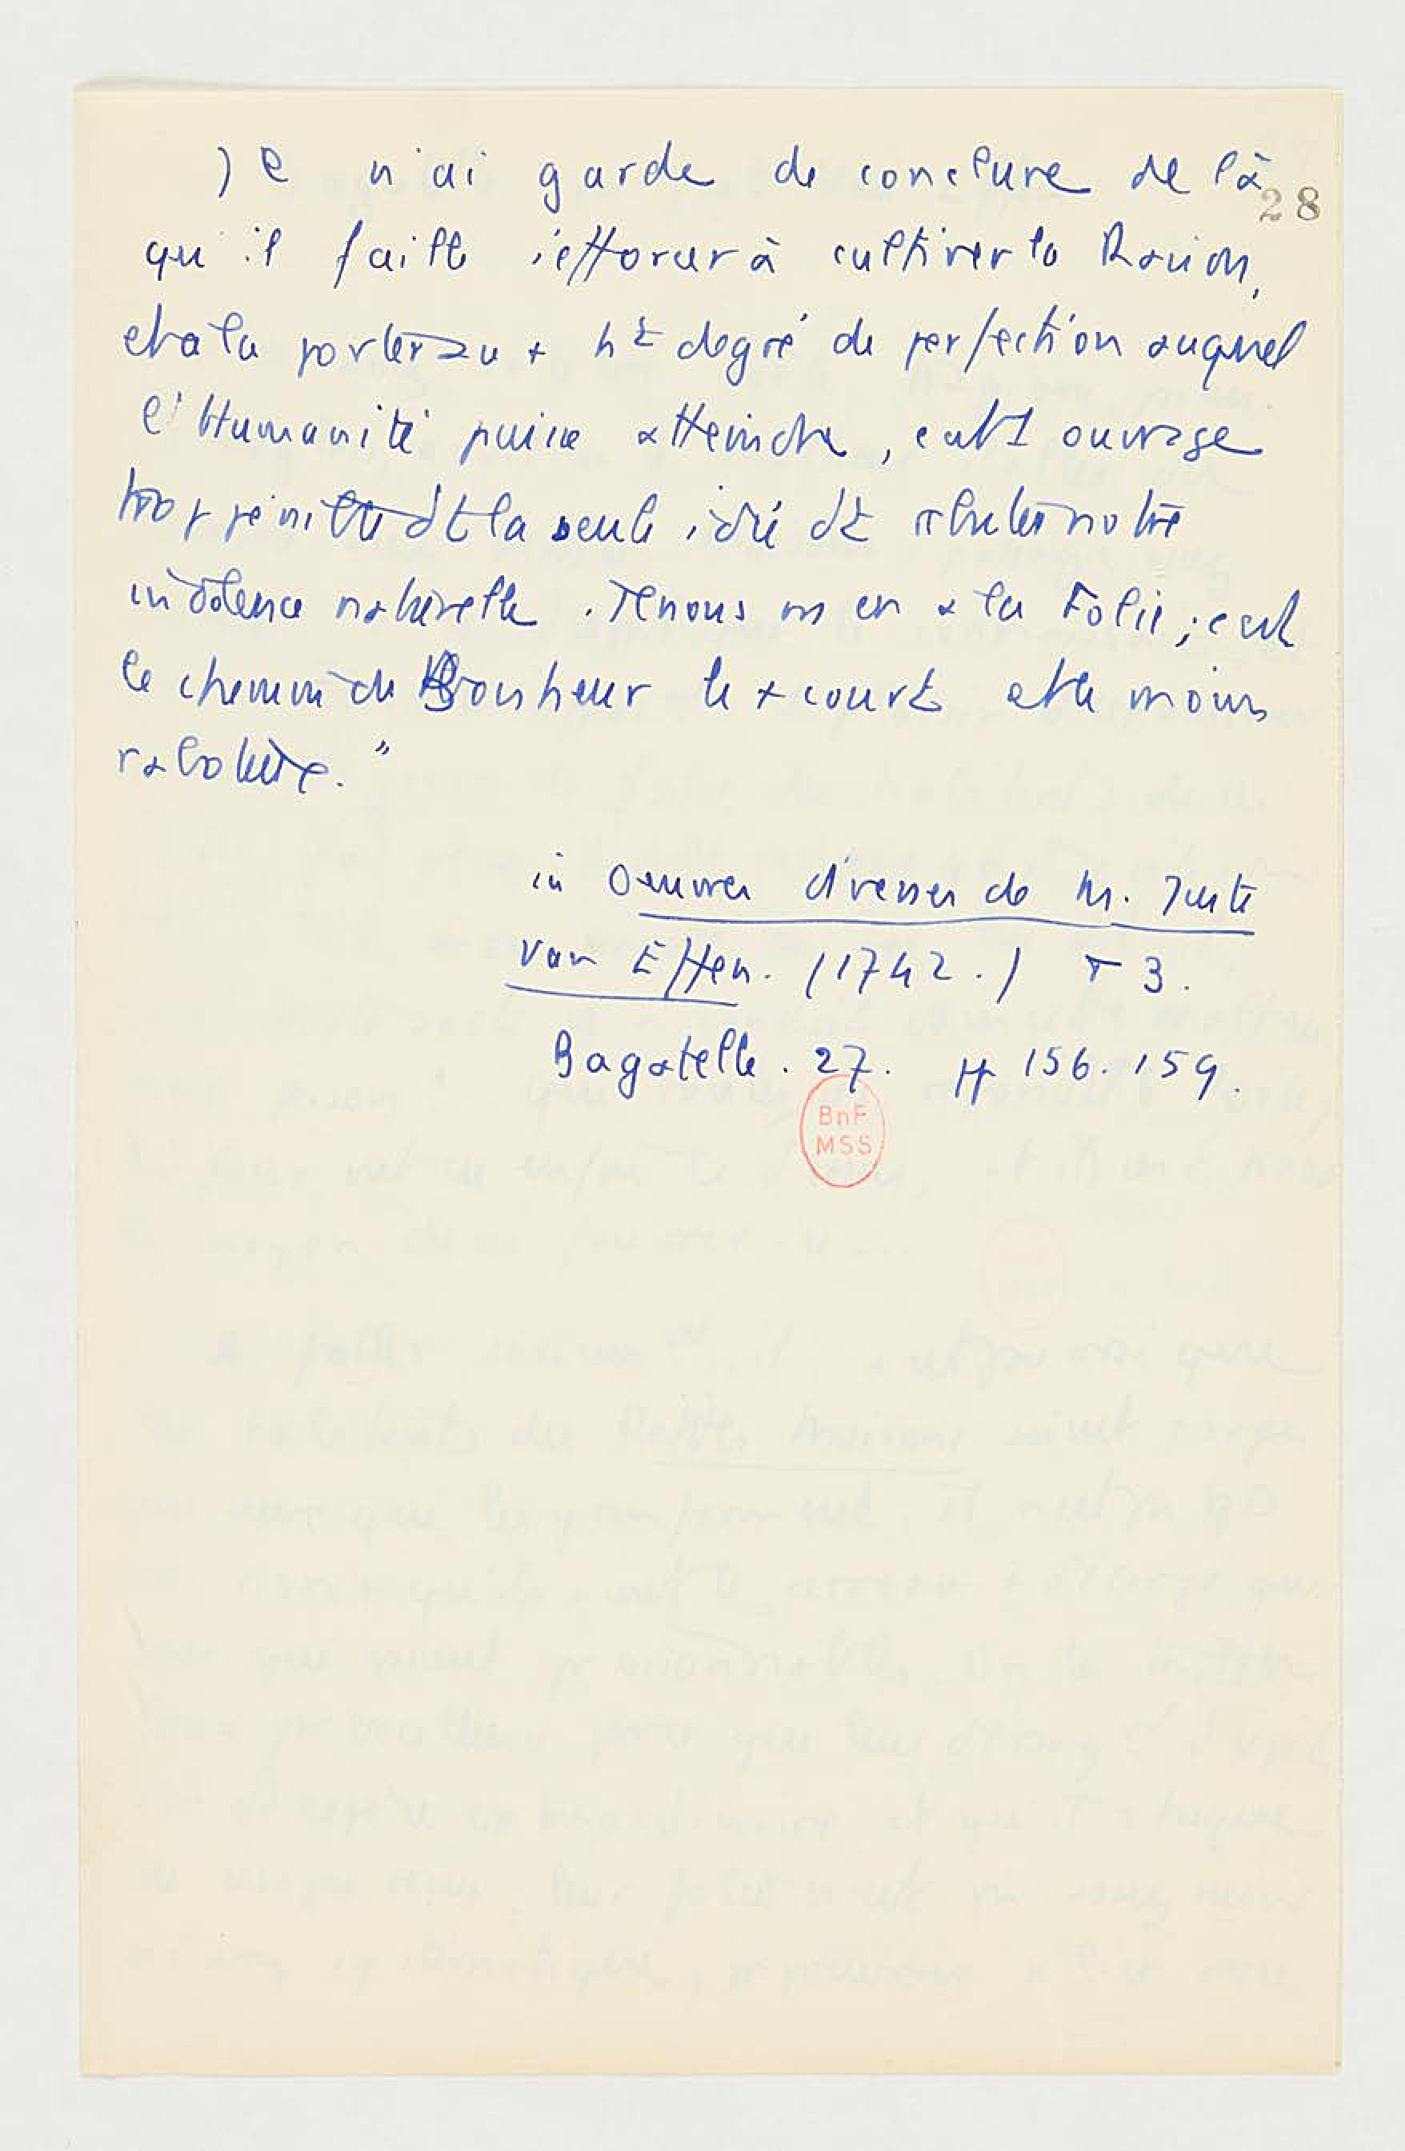 Je n'ai garde de conclure de là
28
qu'il faille s'efforcer à cultiver la Raison,
et à la porter au + ht degré de perfection auquel
l'Humanité puisse atteindre, c'est 1 ouvrage
trop pénible dt la seule idée dt rebuter notre
indolence naturelle. Tenons ns en à la Folie ; c'est
le chemin du Bonheur le + court et le moins
raboteux."
in Oeuvres diverses de M. Juste
van Effen. (1742.) T 3.
Bagatelle. 27. pp 156.159.
BnF
MSS